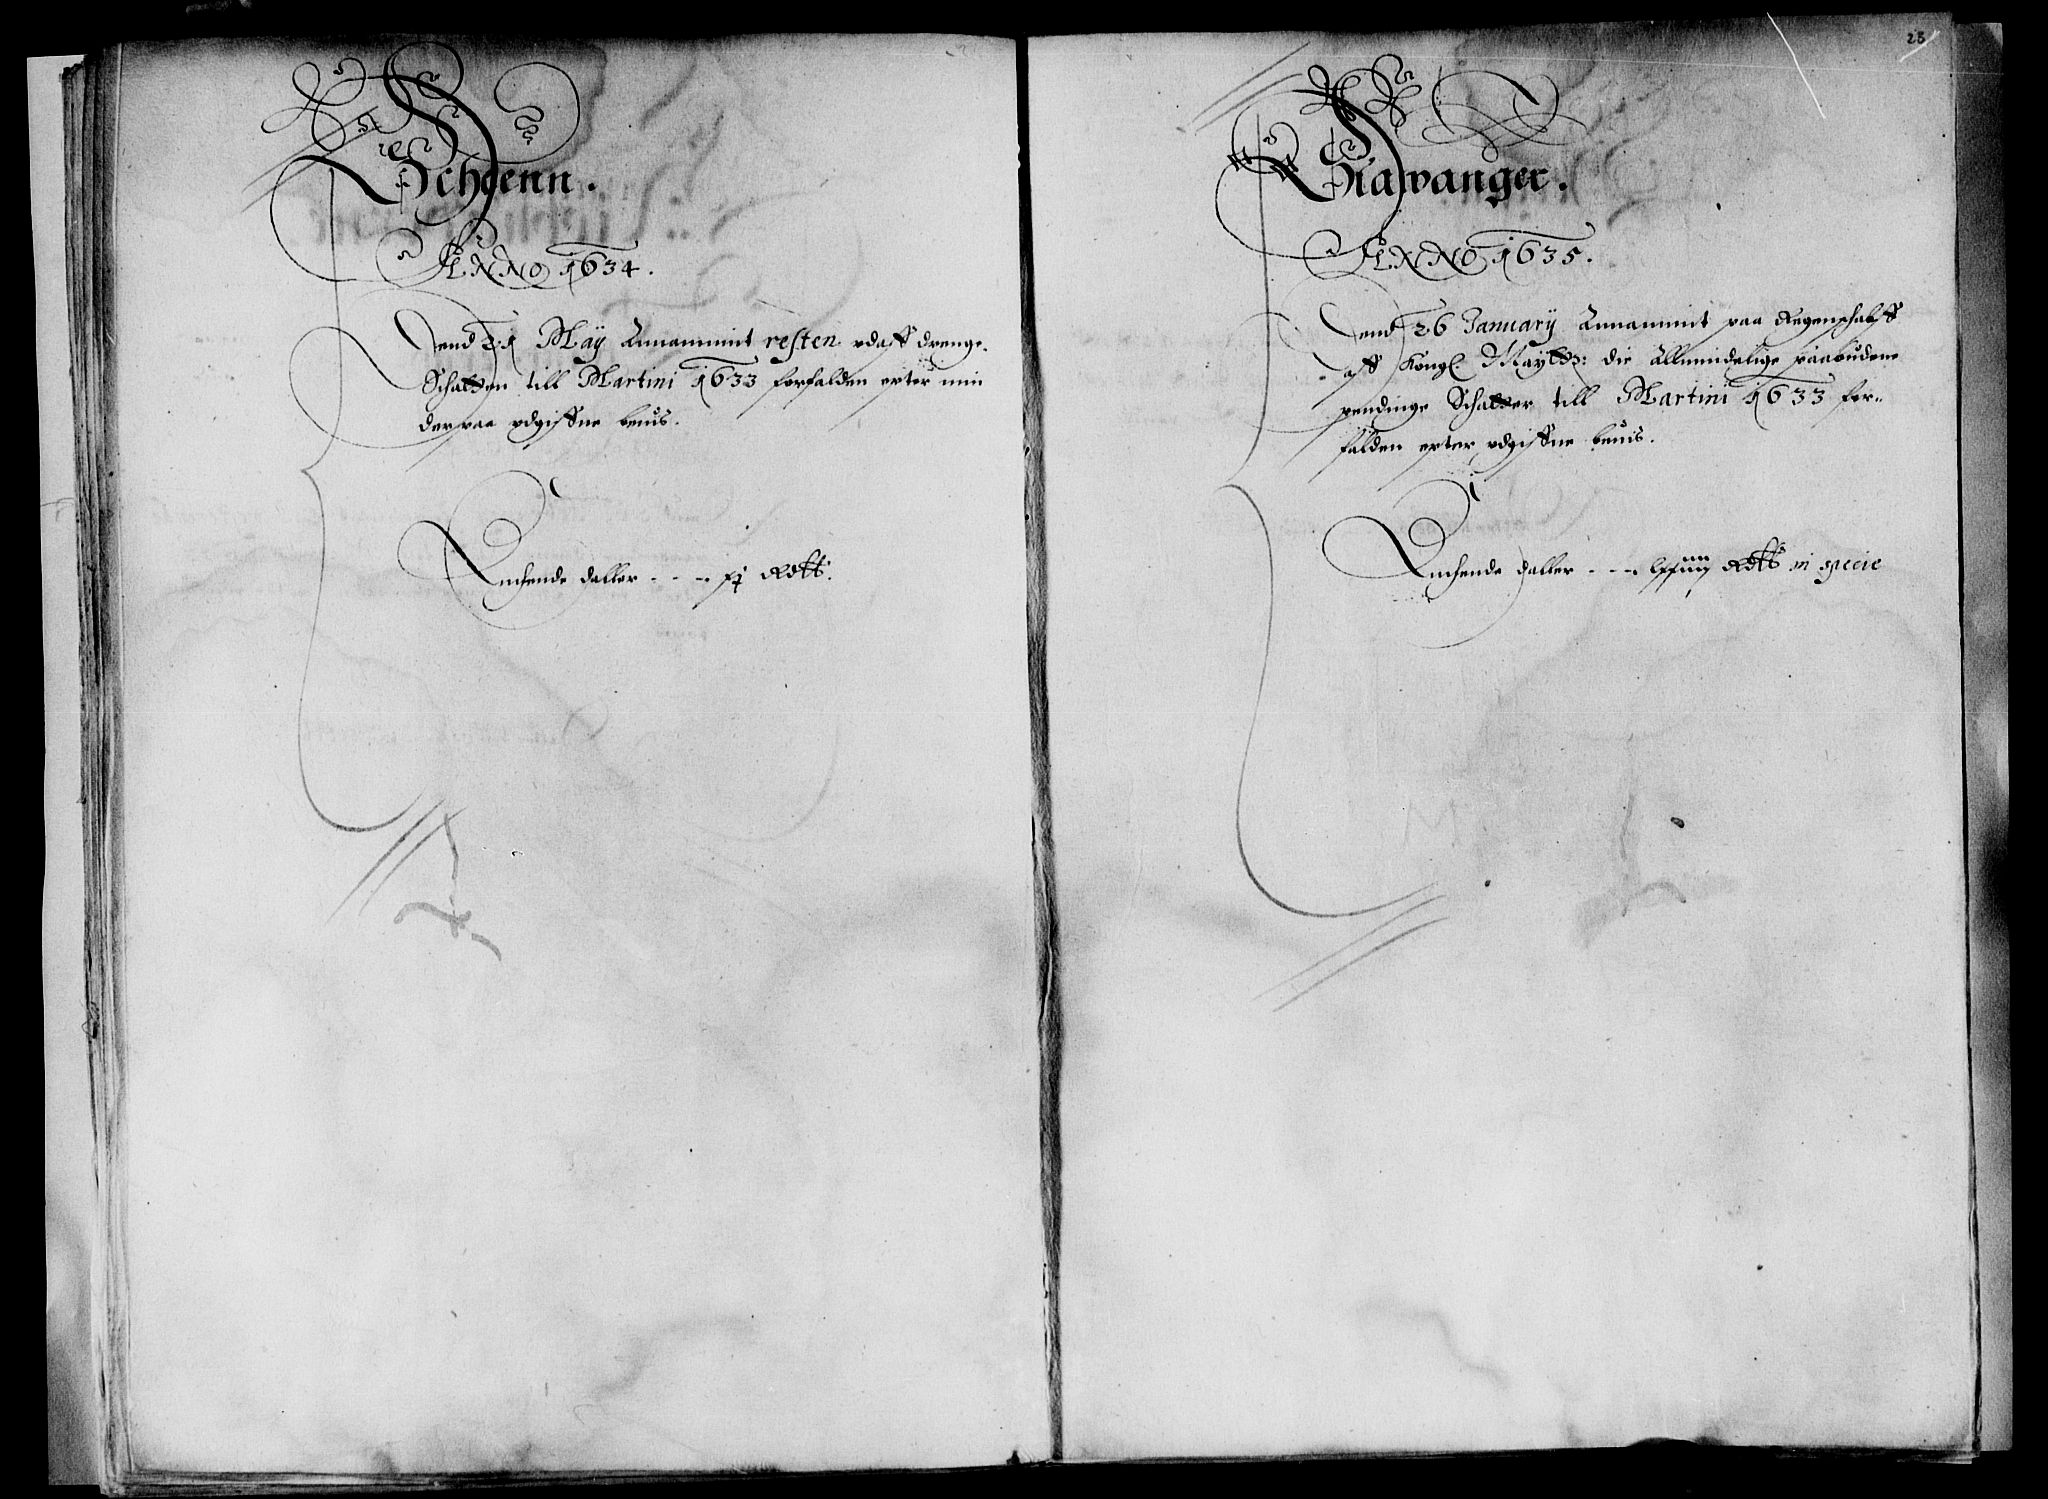 Scheenn.
ANNO 1634.
Dend 21 Maÿ Annammit resten vdaff drenge
Schatten till Martini 1633 forfalden efter min
derpaa vdgiffne beuis.
Enchende daller - - - Rdlr.
23
Stawanger.
ANNO 1635.
Dend 26 Januarÿ Annammit paa Regenschaff
aff Kongl. Maytts: die Allmindelige paabudene
pendinge Schatter till Martini 1633 for-
falden efter vdgiffne beuis.
Enchende daller - - - Rdlr in specie